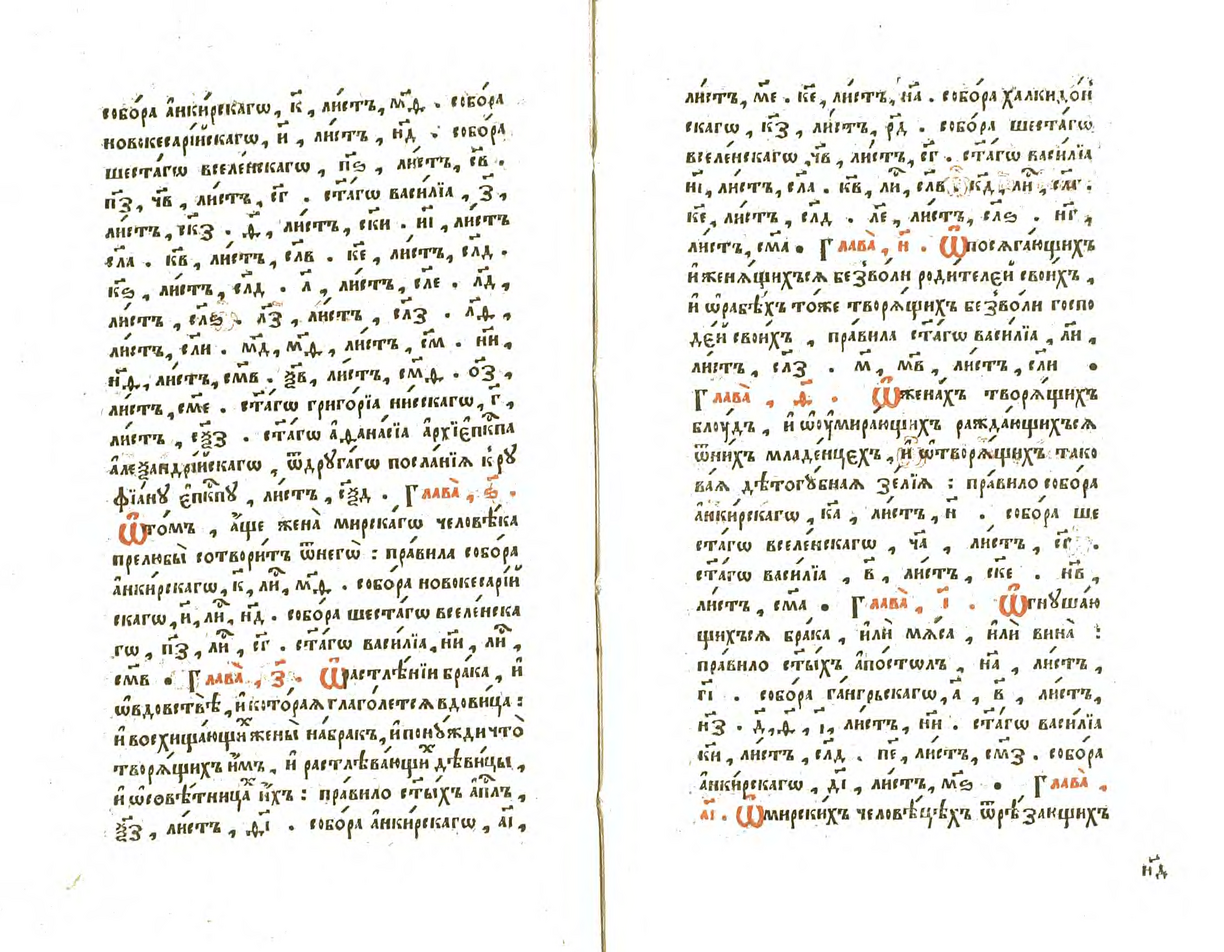 собо́ра а҆нки́рскагѡ , к҃ , ли́стъ , м҃ѳ . собо́ра
новокесарі́йскагѡ , и҃ , ли́стъ , н҃д . собо́ра
шеста́гѡ вселе́нскагѡ , п҃ѕ , ли́стъ , с҃в .
п҃з , ч҃в , ли́стъ , с҃г . ст҃а́гѡ васи́лїа , з҃ ,
ли́стъ , ск҃з . ѳ҃ , ли́стъ , ск҃и . и҃і , ли́стъ
сл҃а . к҃в , ли́стъ , сл҃в . к҃е , ли́стъ , сл҃д .
к҃ѕ , ли́стъ , сл҃д . л҃ , ли́стъ , сл҃е . л҃д ,
ли́стъ , сл҃ѕ . л҃з , ли́стъ , сл҃з . л҃ѳ ,
ли́стъ , сл҃и . м҃д , м҃ѳ , ли́стъ , с҃м . н҃и ,
н҃ѳ , ли́стъ , см҃в . ѯ҃в , ли́стъ , см҃ѳ . о҃з ,
ли́стъ , см҃е . ст҃а́гѡ григо́рїа ни́сскагѡ , г҃ ,
ли́стъ , сѯ҃з . ст҃а́гѡ а҆ѳана́сїа а҆рхїеп҃кпа
а҆леѯандрі́йскагѡ , ѿдруга́гѡ посла́нїѧ к̾рꙋ
фїа́нꙋ є҆п҃кпꙋ , ли́стъ , сѯ҃д . Глава̀ , ѕ҃ .
Ѡ҆то́мъ , а҆́ще жена̀ ми́рскагѡ человѣ́ка
прелюбы̀ сотвори́тъ ѿнегѡ̀ : пра́вила собо́ра
а҆нки́рскагѡ , к҃ , ли́ , м҃ѳ . собо́ра новокесарі́й
скагѡ , и҃ , ли́ , н҃д . собо́ра шеста́гѡ вселе́нска
гѡ , п҃з , ли́ , с҃г . ст҃а́гѡ васи́лїа , н҃и , ли́ ,
см҃в . Глава̀ , з҃ . Ѡ҆растлѣ́нїи бра́ка , и҆
ѡ҆вдовствѣ̀ , и҆кото́раѧ глаго́летсѧ вдови́ца :
и҆ восхища́ющиⷯ жены̀ на́бракъ , и҆понꙋ́жди что̀
творѧ́щихъ и҆̀мъ , и҆ растлѣва́ющиⷯ дѣви́цы ,
и҆ ѡ҆совѣ́тницаⷯ и҆́хъ : пра́вило ст҃ы́хъ а҆п҃лъ ,
ѯ҃з , ли́стъ , ѳ҃і . собо́ра а҆нки́рскагѡ , а҃і ,
ли́стъ , м҃е . к҃е , ли́стъ , н҃а . собо́ра халкидо́н
скагѡ , к҃з , ли́стъ , р҃д . собо́ра шеста́гѡ
вселе́нскагѡ , ч҃в , ли́стъ , с҃г . ст҃а́гѡ васи́лїа
и҃і , ли́стъ , сл҃а . к҃в , ли́ , сл҃в . к҃д , ли́ , сл҃г .
к҃е , ли́стъ , сл҃д . л҃е , ли́стъ , сл҃ѕ . н҃г ,
ли́стъ , см҃а . Глава̀ , и҃ . Ѡ҆посѧга́ющихъ
и҆ женѧ́щихъсѧ без̾во́ли роди́телей свои́хъ ,
и҆ ѡ҆рабѣ́хъ то́же творѧ́щихъ без̾во́ли госпо
де́й свои́хъ , пра́вила ст҃а́гѡ васи́лїа , л҃и ,
ли́стъ , сл҃з . м҃ , м҃в , ли́стъ , сл҃и .
Глава̀ , ѳ҃ . Ѡ҆жена́хъ творѧ́щихъ
блоу́дъ , и҆ ѡ҆оу҆мира́ющихъ ражда́ющихъсѧ
ѿни́хъ младе́нцехъ , и҆ ѡ҆творѧ́щихъ тако
ва́ѧ дѣтогꙋ́бнаѧ зе́лїѧ : пра́вило собо́ра
а҆нки́рскагѡ , к҃а , ли́стъ , н҃ . собо́ра ше
ста́гѡ вселе́нскагѡ , ч҃а , ли́стъ , с҃г .
ст҃а́гѡ васи́лїа , в҃ , ли́стъ , ск҃е . н҃в ,
ли́стъ , см҃а . Глава̀ , і҃ . Ѡ҆гнꙋша́ю
щихъсѧ бра́ка , и҆лѝ мѧ́са , и҆лѝ вина̀ :
пра́вило ст҃ы́хъ а҆по́столъ , н҃а , ли́стъ ,
г҃і . собо́ра га́нгрьскагѡ , а҃ , в҃ , ли́стъ ,
н҃з . д҃ , ѳ҃ , і҃ , ли́стъ , н҃и . ст҃а́гѡ васи́лїа
к҃и , ли́стъ , сл҃д . п҃е , ли́стъ , см҃з . собо́ра
а҆нки́рскагѡ , д҃і , ли́стъ , м҃ѕ . Глава̀ ,
а҃і . Ѡ҆ми́рскихъ человѣ́цѣхъ ѿрѣ́зающихъ
н҃д